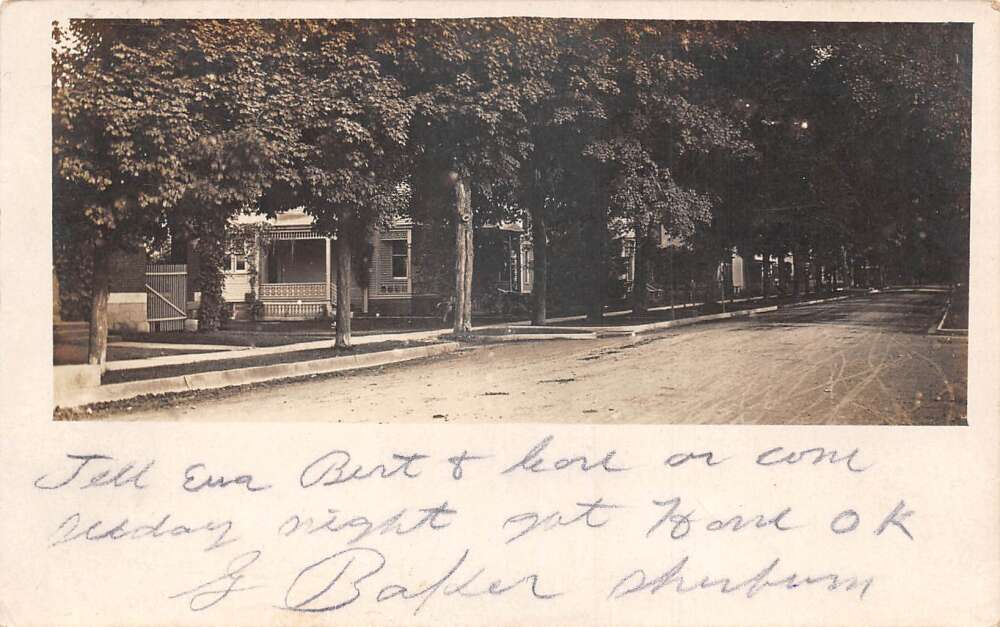 Tell Eva Bert & Cora or come
night got Home OK
G Baker Sherburn